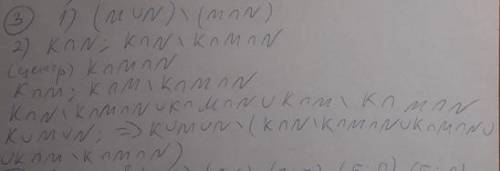 ③ 1) (M∪N)\(M∩N)
2) K∩N; K∩N\K∩M∩N
(центр) K∩M∩N
K∩M; K∩M\K∩M∩N
K∩N\K∩M∩N∪K∩M∩N∪K∩M\K∩M∩N
K∪M∪N; ⇒ K∪M∪N\(K∩N\K∩M∩N∪K∩M∩N∪
∪K∩M\K∩M∩N)